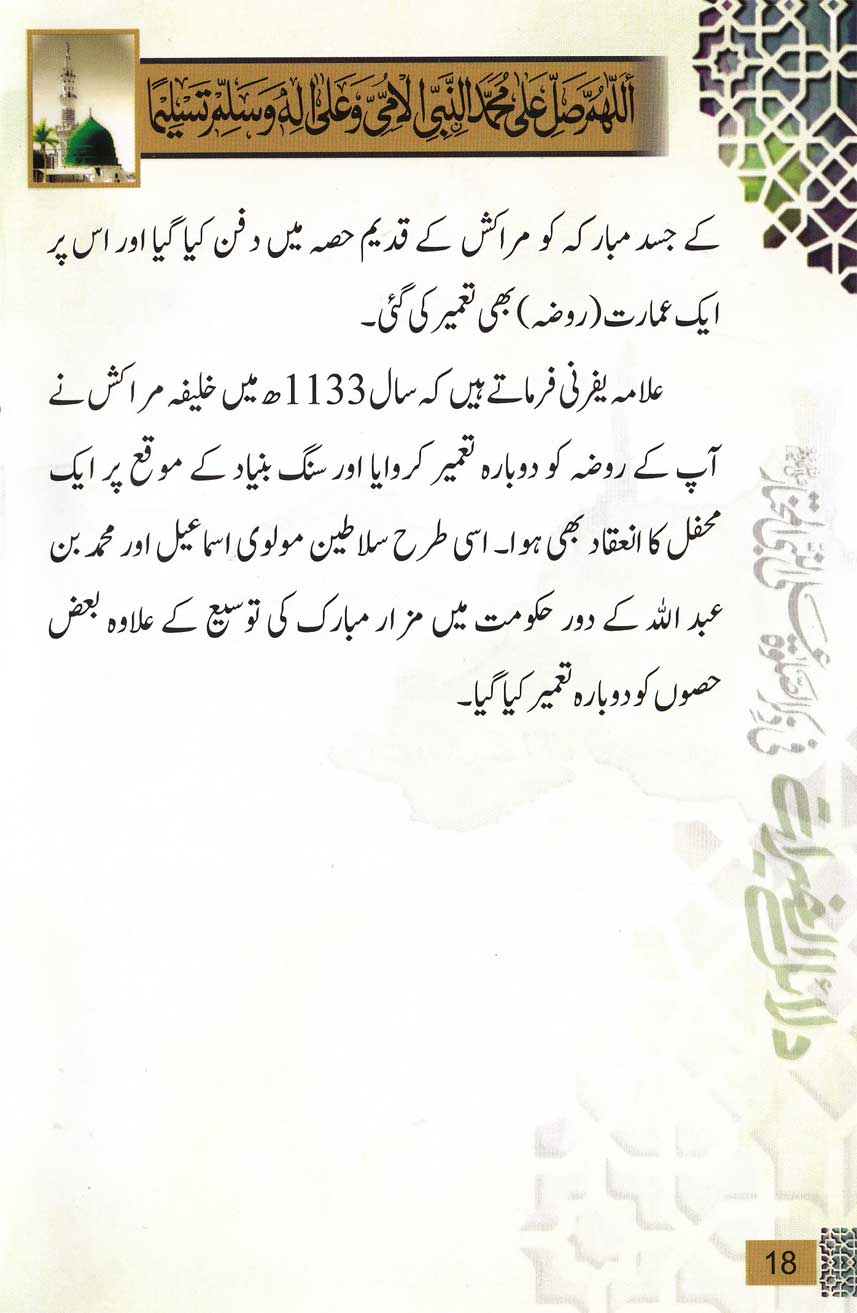 أَللّٰهُمَّ صَلِّ عَلٰى مُحَمَّدِ النَّبِيِّ الْاُمِّيِّ وَعَلٰى اٰلِهٖ وَسَلِّمْ تَسْلِيْمًا
کے جسد مبارکہ کو مراکش کے قدیم حصہ میں دفن کیا گیا اور اس پر
ایک عمارت (روضہ) بھی تعمیر کی گئی۔
علامہ یفرنی فرماتے ہیں کہ سال 1133ھ میں خلیفہ مراکش نے
آپ کے روضہ کو دوبارہ تعمیر کروایا اور سنگ بنیاد کے موقع پر ایک
محفل کا انعقاد بھی ہوا۔ اسی طرح سلاطین مولوی اسماعیل اور محمد بن
عبد اللہ کے دور حکومت میں مزار مبارک کی توسیع کے علاوہ بعض
حصوں کو دوبارہ تعمیر کیا گیا۔
دلائل الخیرات
18